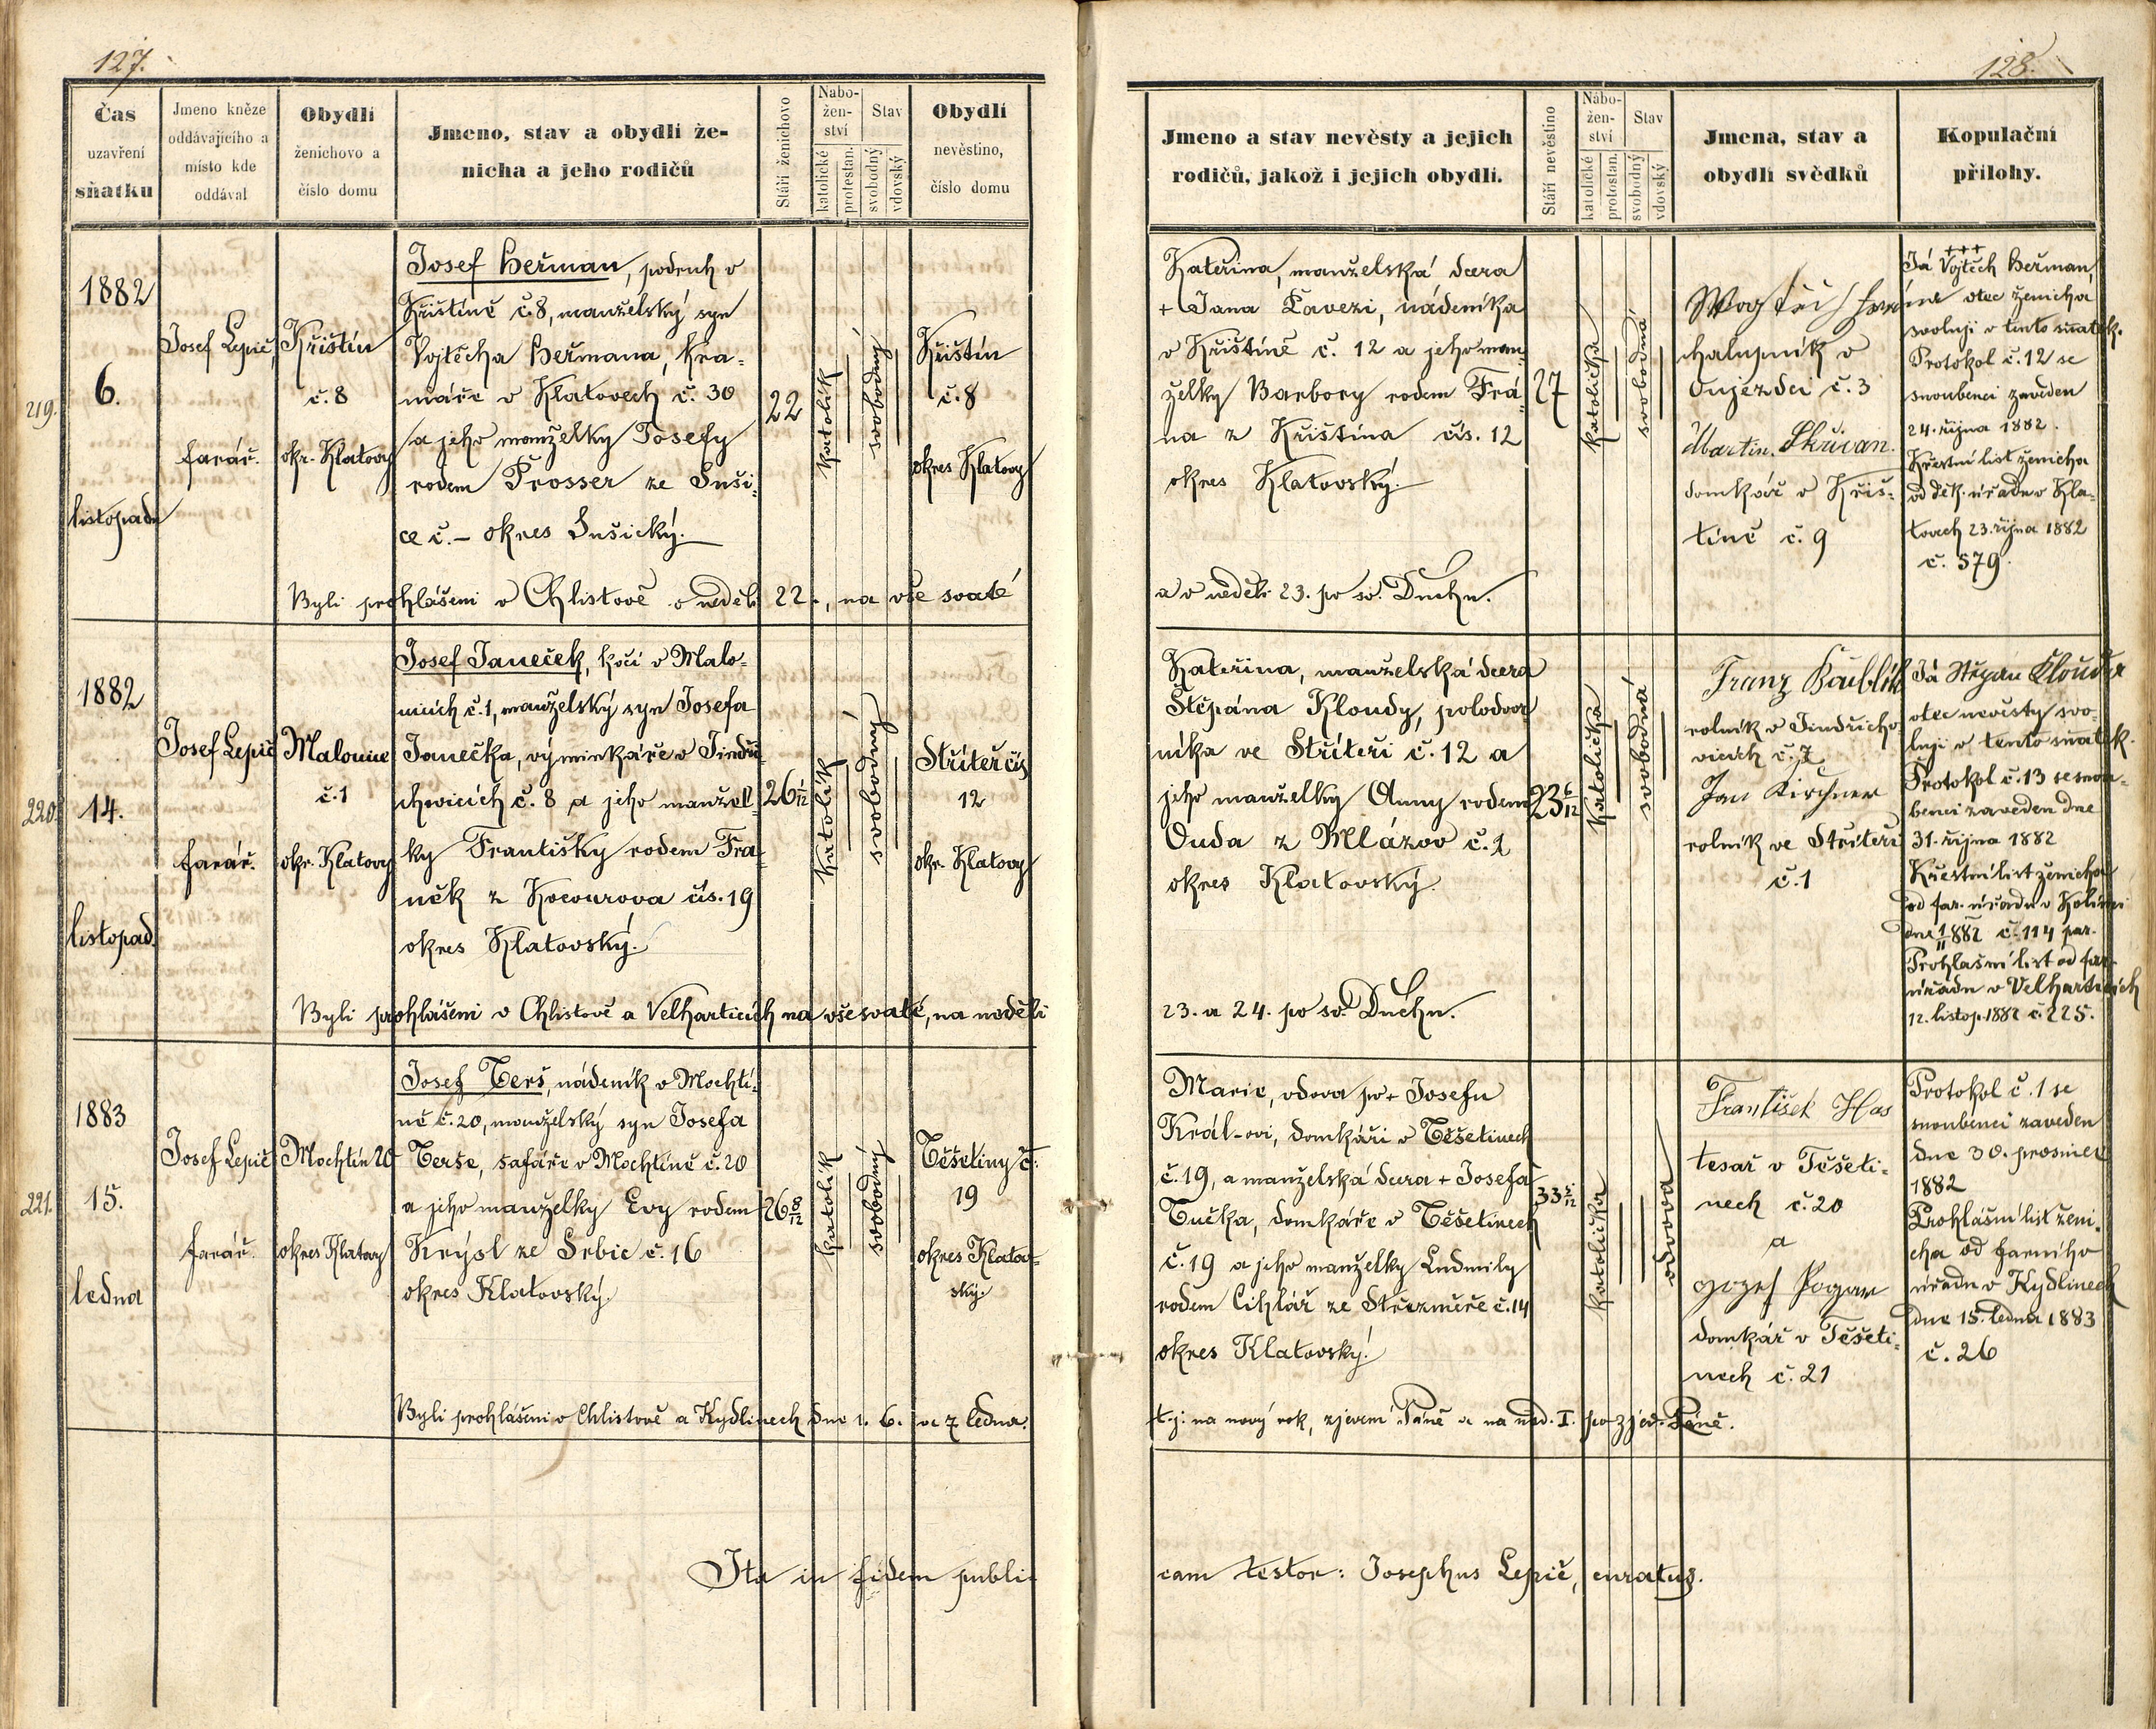 127.
Čas
uzavření
sňatku
Jmeno kněze
oddávajícího a
místo kde
oddával
Obydlí
ženichovo a
číslo domu
Jmeno, stav a obydlí že-
nicha a jeho rodičů
Stáří ženichovo
Nábo-
žen-
ství
katolické
protestan.
Stav
svobodný
vdovský
Obydlí
nevěstino,
číslo domu
219.
1882
6.
listopadu
Josef Lepič,
farář.
Křištín
č. 8
okr. Klatovy
Josef Heřman, podruh v
Křištíně č. 8, manželský syn
Vojtěcha Heřmana, kra-
máře v Klatovech č. 30
a jeho manželky Josefy
rodem Prosser ze Suši-
ce č. – okres Sušický.
22
katolík
svobodný
Křištín
č. 8
okres Klatovy
Byli prohlášeni v Chlistově v neděli 22., na vše svaté
220.
1882
14.
listopad.
Josef Lepič
farář.
Malonice
č. 1
okr. Klatovy
Josef Janeček, kočí v Malo-
nicích č. 1, manželský syn Josefa
Janečka, výminkáře v Jindři-
chovicích č. 8 a jeho manžel-
ky Františky rodem Fra-
něk z Kocourova čís. 19
okres Klatovský.
katolík
svobodný
Střiteř čís
12
okr. Klatovy
Byli prohlášeni v Chlistově a Velharticích na všesvaté, na neděli
221.
1883
15.
ledna
Josef Lepič
farář.
Mochtín 20
okres Klatovy
Josef Terš, nádeník v Mochtí-
ně č. 20, manželský syn Josefa
Terše, šafáře v Mochtíně č. 20
a jeho manželky Evy rodem
Krýsl ze Srbic č. 16
okres Klatovský.
26 8/12
katolík
svobodný
Těšetiny č.
19
okres Klatov-
ský.
Byli prohlášeni v Chlistově a Kydlinech dne 1. 6. a 7 ledna.
Ita in fidem publi-
128.
Jmeno a stav nevěsty a jejich
rodičů, jakož i jejich obydlí.
Stáří nevěstino
Nábo-
žen-
ství
katolické
protestan.
Stav
svobodný
vdovský
Jmena, stav a
obydlí svědků
Kopulační
přílohy.
Kateřina, manželská dcera
+ Jana Lavezi, nádeníka
v Křištíně č. 12 a jeho man-
želky Barbory rodem Frá-
na z Křištína čís. 12
okres Klatovský.
27
katolička
svobodná
chalupník v
Oujezdci č. 3
Martin Skřivan.
domkář v Křiš-
tíně č. 9
+++
Já Vojtěch Heřman,
otec ženicha
svoluji v tento sňatek.
Protokol č. 12 se
snoubenci zaveden
24. října 1882.
Křestní list ženicha
od děk. úřadu v Kla-
tovech 23. října 1882
č. 579.
a v neděli 23. po sv. Duchu.
Kateřina, manželská dcera
Štěpána Kloudy, polodvor
níka ve Střiteři č. 12 a
jeho manželky Anny rodem
Duda z Mlázov č. 1
okres Klatovský.
katolička
svobodná
Franz
rolník v Jindřicho
vicích č. 7
Jan Kirchner
rolník ve Střiteři
č. 1
Já Štěpán Klouda
otec nevěsty svo-
luji v tento sňatek.
Protokol č. 13 se snou-
benci zaveden dne
31. října 1882
Křestní list ženicha
od far. úřadu v Kolinci
dne 1/11 882 č. 114 par.
Prohlašní list od far.
úřadu v Velharticích
12. listop. 1882 č. 225.
23. a 24. po sv. Duchu.
Marie, vdova po + Josefu
Král-ovi, domkáři v Těšetinech
č. 19, a manželská dcera + Josefa
Tučka, domkáře v Těšetinech
č. 19 a jeho manželky Ludmily
rodem Cihlář ze Střezmiře č. 14
okres Klatovský.
katolička
vdova
František Has
tesař v Těšeti-
nech č. 20
a
domkář v Těšeti-
nech č. 21
Protokol č. 1 se
snoubenci zaveden
dne 30. prosince
1882
Prohlašní list ženi-
cha od farního
úřadu v Kydlinech
dne 15. ledna 1883
č. 26
t. j. na nový rok, zjevení Páně a na ned. I. po zjev. Páně.
cam testor: Josephus Lepič, curatus.